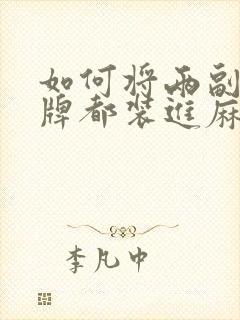 如何将两副
牌都装进麻
李凡中